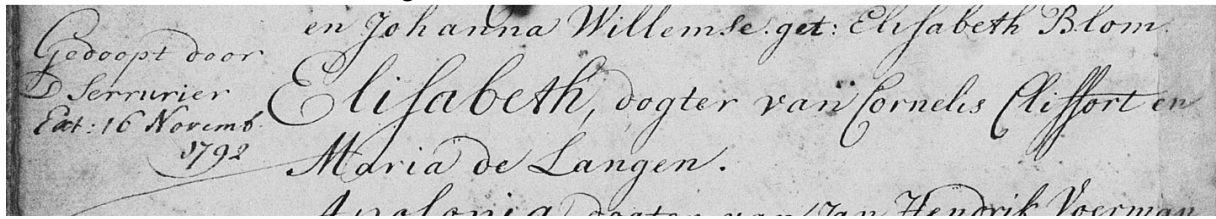 en Johanna Willemse. get: Elisabeth Blom.
Gedoopt door
D Serrurier
Ext: 16 Novemb.
1792
Elisabeth, dogter van Cornelis Cliffort en
Maria de Langen.
Apolonia dogter van Jan Hendrik Voerman